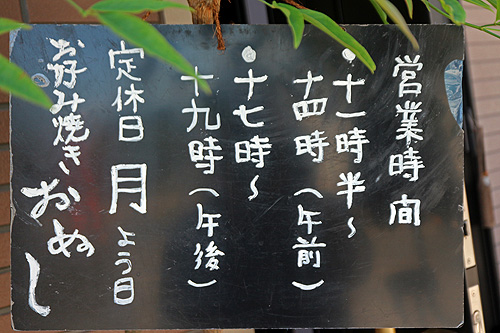 営業時間
・十一時半~
十四時(午前)
・十七時~
十九時(午後)
定休日 月よう日
お好み焼き おぬし